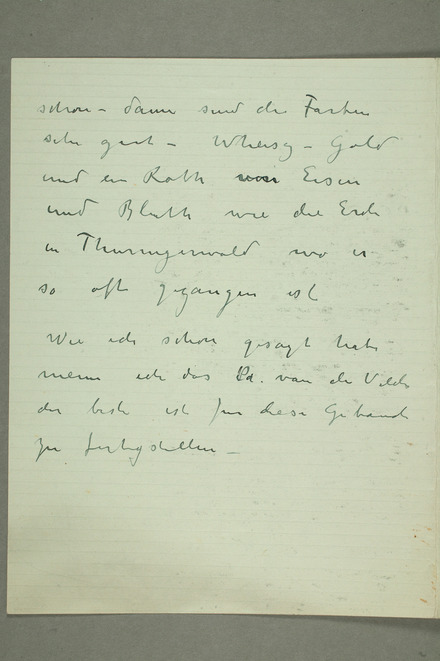 schon - dann sind die Farben
sehr gut - Whisky - Gold
und ein Roth von Eisen
und Bluth wie die Erde
in Thuringerwald wo er
so oft gegangen ist
Wie ich schon gesagt habe
meine ich das van de Velde
der beste ist für diese Gebaude
zu fertigstellen -